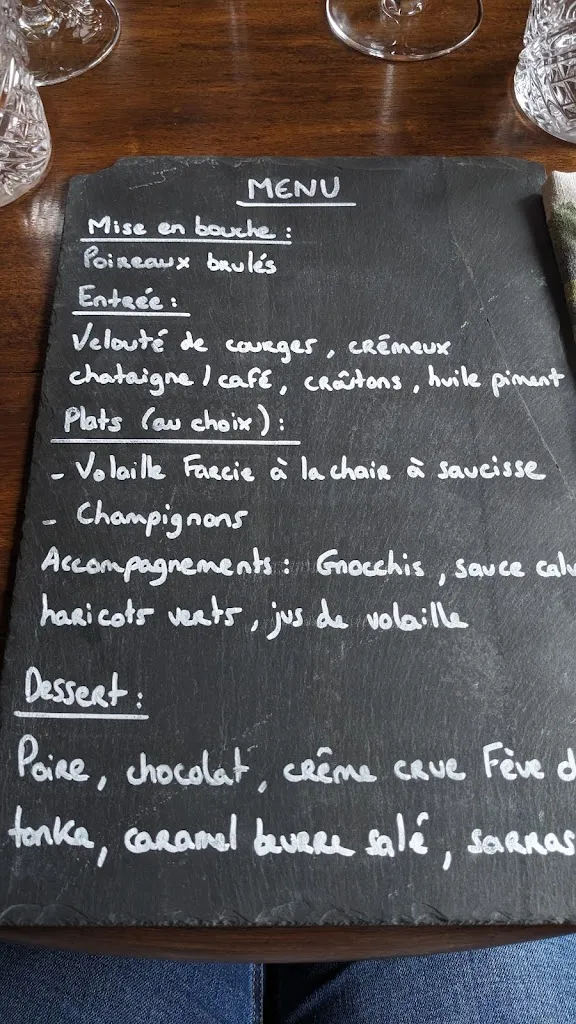 MENU
Mise en bouche :
Poireaux brulés
Entrée :
Velouté de courges, crémeux
chataigne / café, croûtons, huile piment
Plats (au choix) :
- Volaille Farcie à la chair à saucisse
- Champignons
Accompagnements : Gnocchis, sauce calv
haricots verts, jus de volaille
Dessert :
Poire, chocolat, crême crue Fève d
tonka, caramel beurre salé, sarras